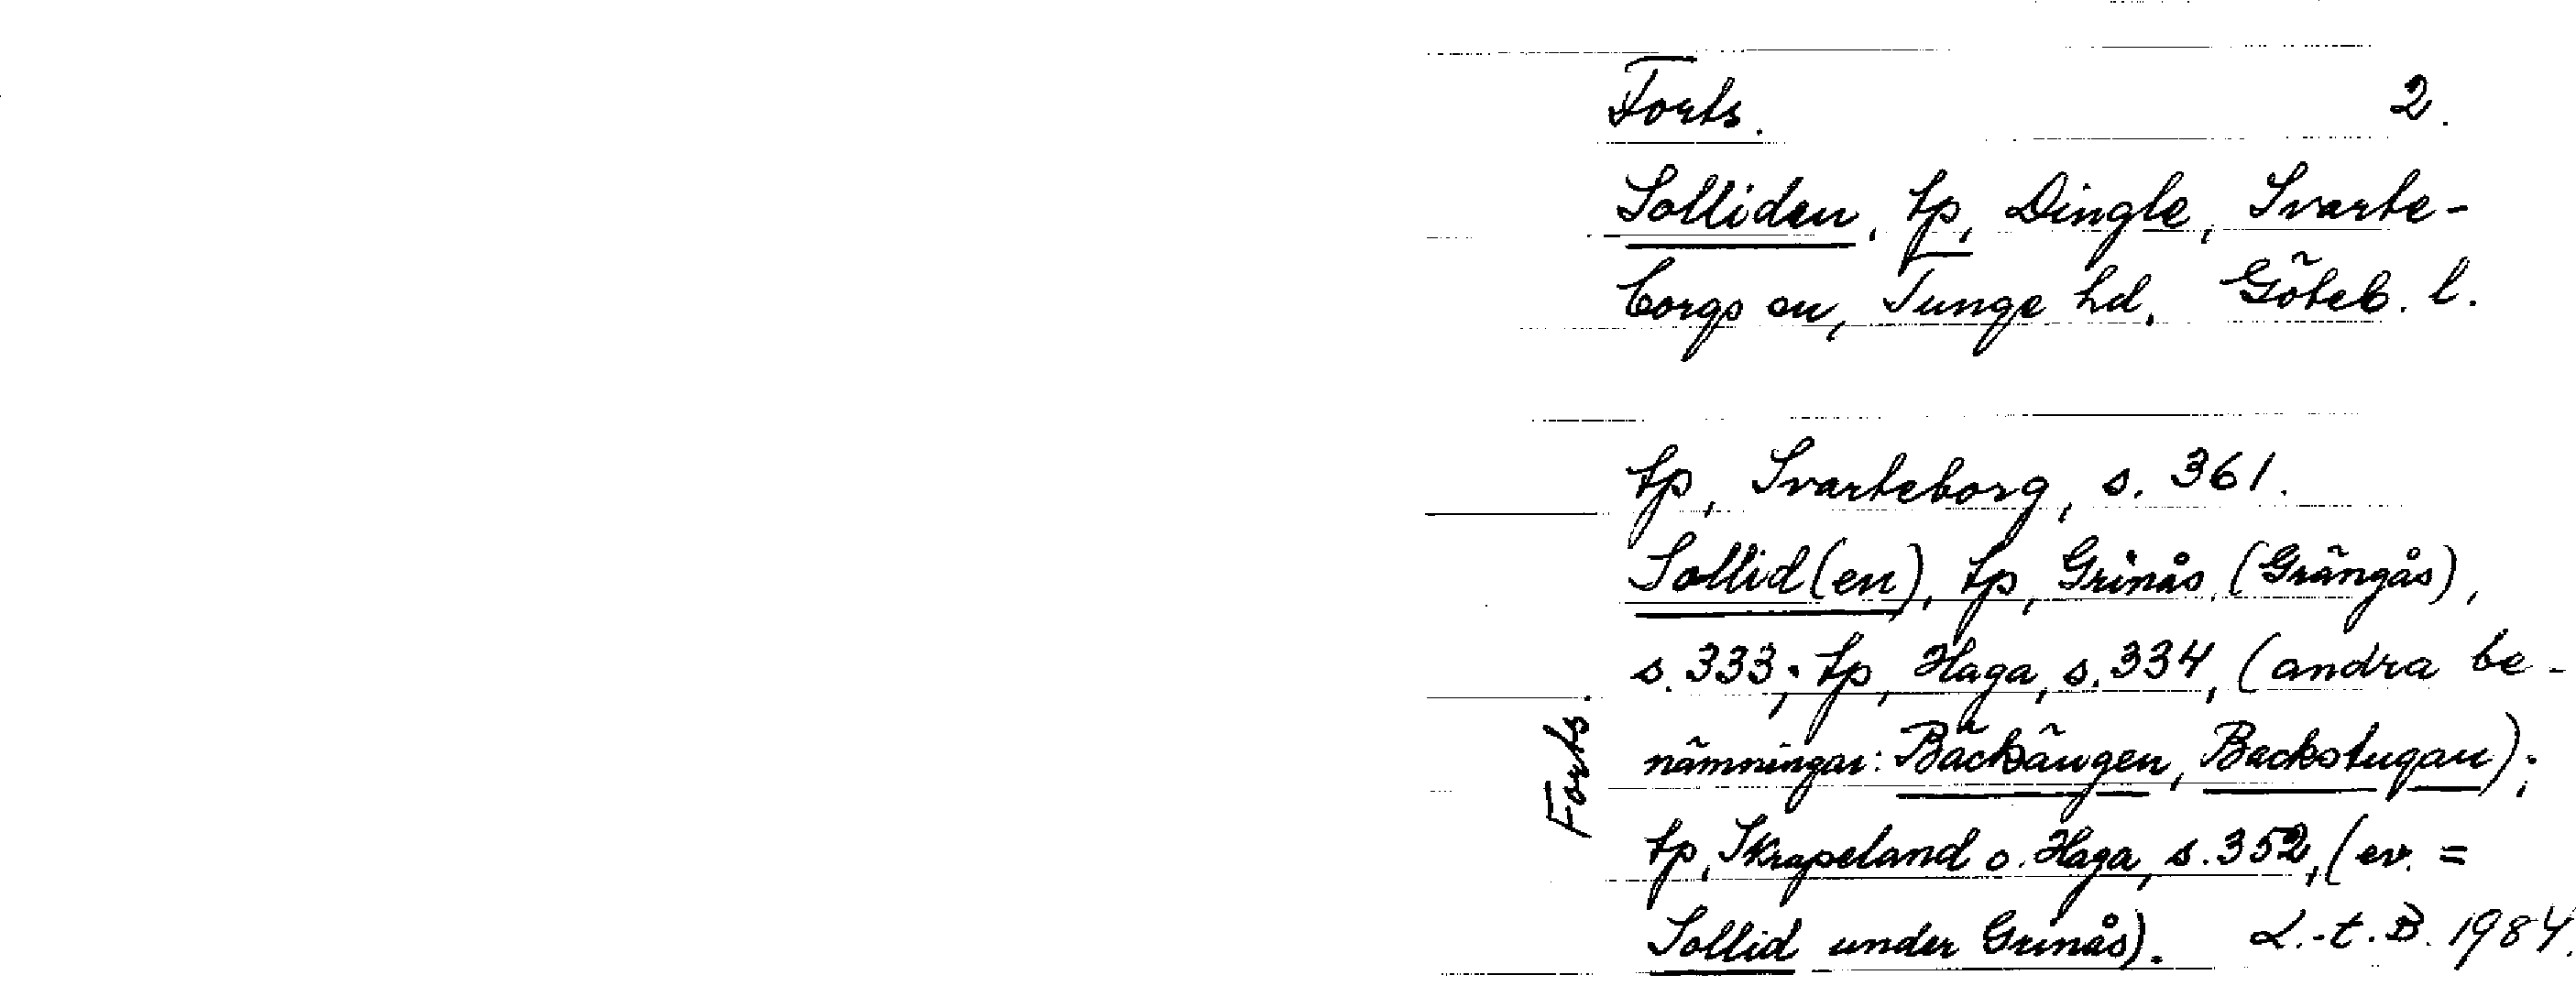 Forts. 2.
Solliden, tp, Dingle, Svarte-
borgs sn, Tunge hd. Göteb. l.
tp, Svarteborg, s. 361.
Sollid(en), tp, Grinås, (Grängås),
s. 333; tp, Haga, s. 334, (andra be-
nämningar: Backängen, Backstugan);
tp, Skrapeland o. Haga, s. 352, (ev. =
Sollid under Grinås). L.-t. B. 1984.
Forts.